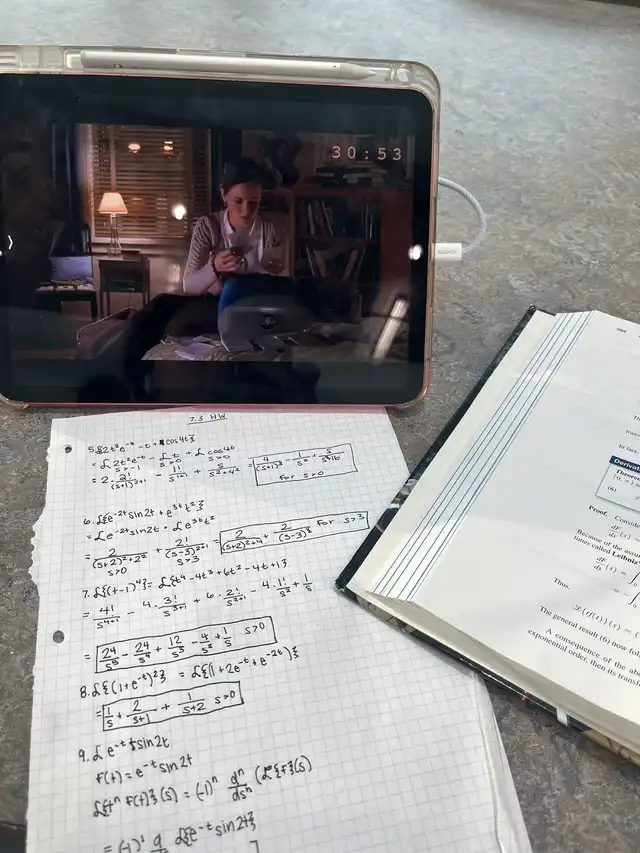 30:53
7.3 HW
5. ℒ{2t²e⁻ᵗ - t + cos4t}
= ℒ 2t²e⁻ᵗ - ℒ t + ℒ cos4t
s>-1 s>0 s>0
= 2 · 2!/(s+1)²⁺¹ - 1!/s¹⁺¹ + s/(s²+4²) = 4/(s+1)³ - 1/s² + s/(s²+16)
for s>0
6. ℒ{e⁻²ᵗsin2t + e³ᵗt²}
= ℒ e⁻²ᵗsin2t + ℒ e³ᵗt²
= 2/((s+2)²+2²) + 2!/(s-3)²⁺¹ = 2/((s+2)²+4) + 2/(s-3)³ for s>3
s>0 s>3
7. ℒ{(t-1)⁴} = ℒ{t⁴-4t³+6t²-4t+1}
= 4!/s⁴⁺¹ - 4·3!/s³⁺¹ + 6·2!/s²⁺¹ - 4·1!/s² + 1/s
= 24/s⁵ - 24/s⁴ + 12/s³ - 4/s² + 1/s s>0
8. ℒ{(1+e⁻ᵗ)²} = ℒ{(1+2e⁻ᵗ+e⁻²ᵗ)}
= 1/s + 2/(s+1) + 1/(s+2) s>0
9. ℒ e⁻ᵗ t sin2t
f(t) = e⁻ᵗ sin2t
ℒ{tⁿ f(t)}(s) = (-1)ⁿ dⁿ/dsⁿ (ℒ{f}(s)
= (-1)¹ d ℒ{e⁻ᵗ sin2t}
In fact,
Theore
(6)
Proof. Conside
dF/ds (s) =
Because of the assu
times called Leibniz'
dF/ds (s) =
Thus,
ℒ{tf(t)}(s) =
The general result (6) now foll
A consequence of the abo
exponential order, then its transf